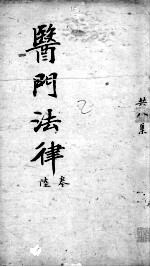 共八集
醫門法律
叁
陸